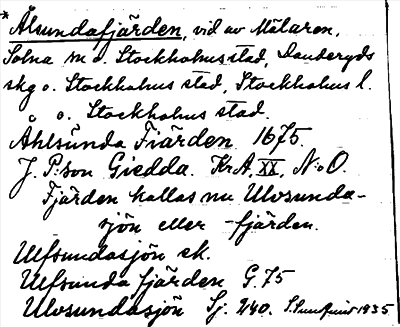 * Ålsundafjärden, vid av Mälaren,
Solna sn o. Stockholms stad, Danderyds
skg o. Stockholms stad, Stockholms l.
o. Stockholms stad.
Åhlsunda Fiärden 1675.
J. P:son Giedda. KrA, XX, N:o 0.
Fjärden kallas nu Ulvsunda-
sjön eller -fjärden.
Ulfsundasjön ek.
Ulfsunda fjärden G. 75
Ulvsundasjön Sj. 240. 1935